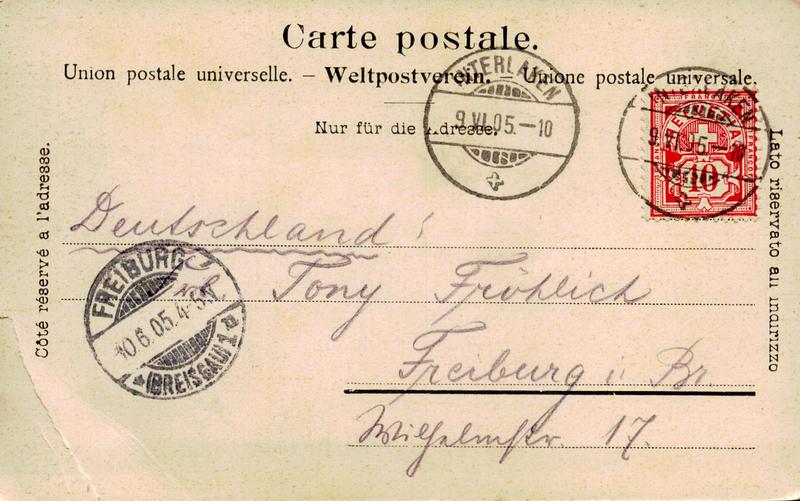 Carte postale.
Union postale universelle. – Weltpostverein. – Unione postale universale.
Nur für die Adresse.
Côté réservé à l'adresse.
Lato riservato all indirizzo
INTERLAKEN
9.VI.05.–10
INTERLAKEN
9.VI.05.–10
FRANCO
HELVETIA
10
Deutschland!
Tony Fröhlich
Freiburg i. Br.
Wilhelmstr. 17.
FREIBURG
10.6.05.4-5N.
*(BREISGAU)1a